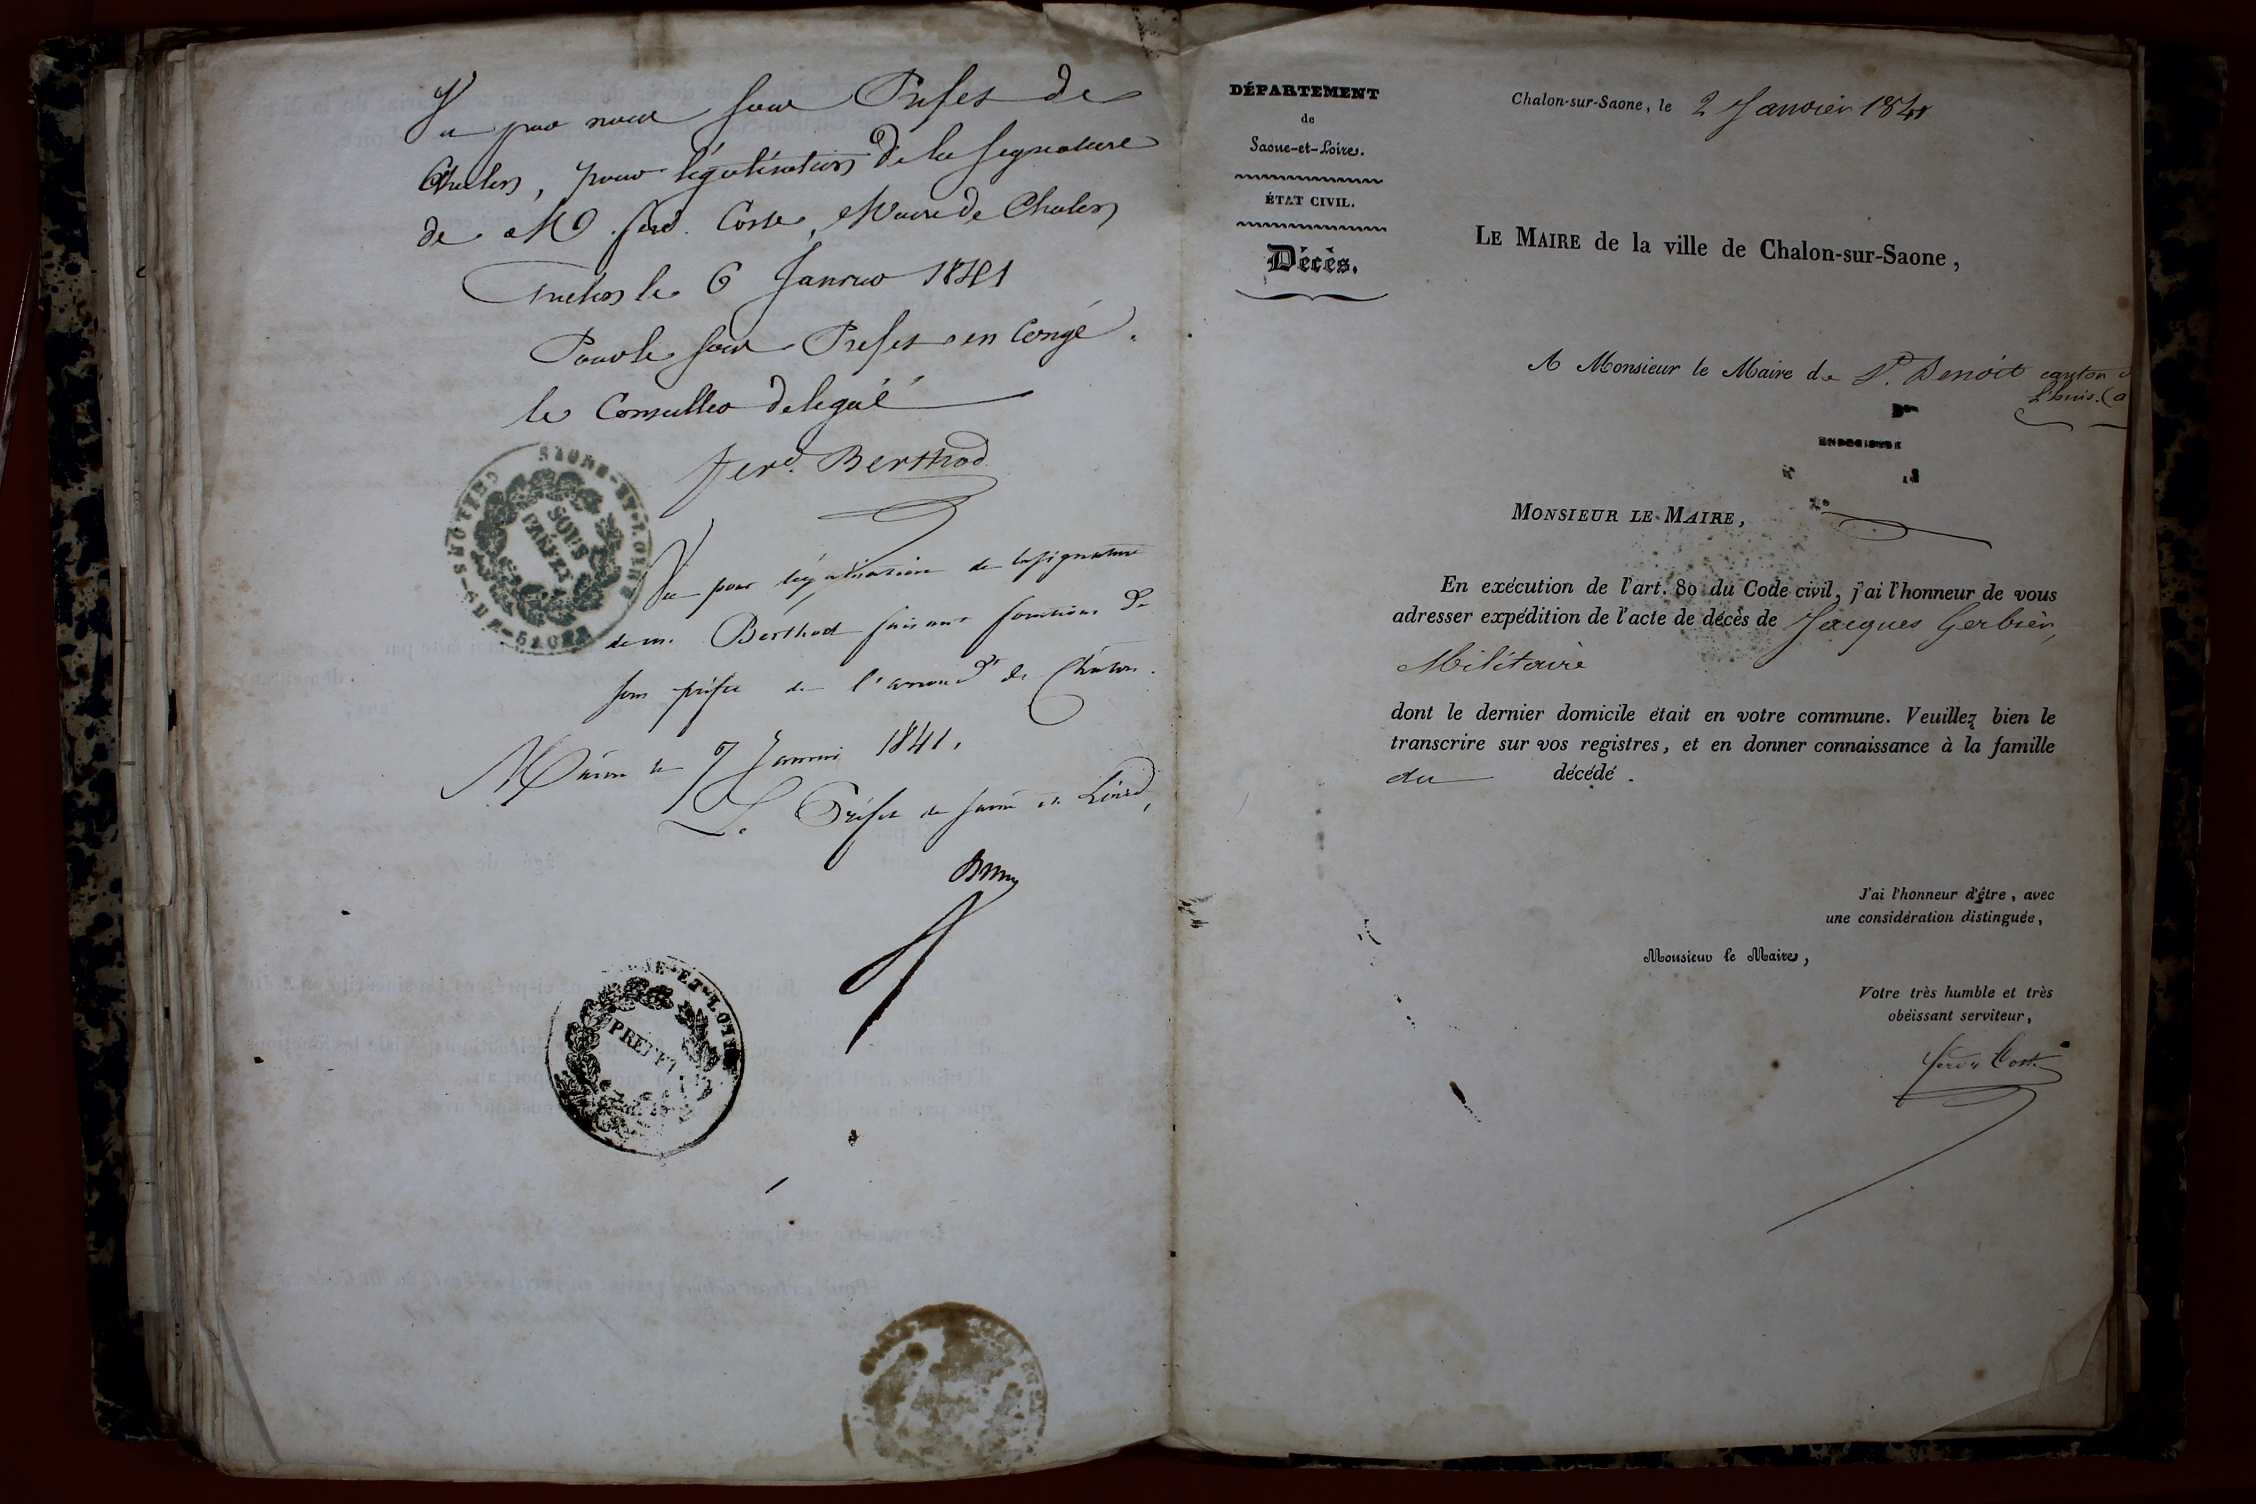 Vu par nous Sous Prefet de
Chalon, pour légalisation de la Signature
de M. ferd. Coste, Maire de Chalon
Chalon le 6 Janvier 1841
Pour le sous Prefet en Congé.
le Conseiller delegué
ferd. Berthod
SAONE-ET-LOIRE
CHALONS-SUR-SAONE
SOUS
PRÉFET
Vu pour légalisation de la signature
de m. Berthod faisant fonctions de
sous préfet de l'arrond.t de Chalon.
Mâcon le 7 Janvier 1841.
Le Préfet de Saone et Loire,
NE-ET-LOIRE
PRÉFET
DÉPARTEMENT
de
Saone-et-Loire.
ÉTAT CIVIL.
Décès.
Chalon-sur-Saone, le 2 Janvier 1841
LE MAIRE de la ville de Chalon-sur-Saone,
A Monsieur le Maire de St. Benoit canton d
L'huis. (a
MONSIEUR LE MAIRE,
En exécution de l'art. 80 du Code civil, j'ai l'honneur de vous
adresser expédition de l'acte de décès de Jacques Gerbier,
Militaire
dont le dernier domicile était en votre commune. Veuillez bien le
transcrire sur vos registres, et en donner connaissance à la famille
du décédé.
J'ai l'honneur d'être, avec
une considération distinguée,
Monsieur le Maire,
Votre très humble et très
obéissant serviteur,
ferd. Coste